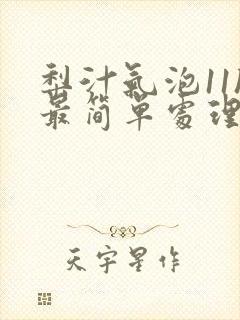 梨汁氣泡11
最简單處理
天宇星作